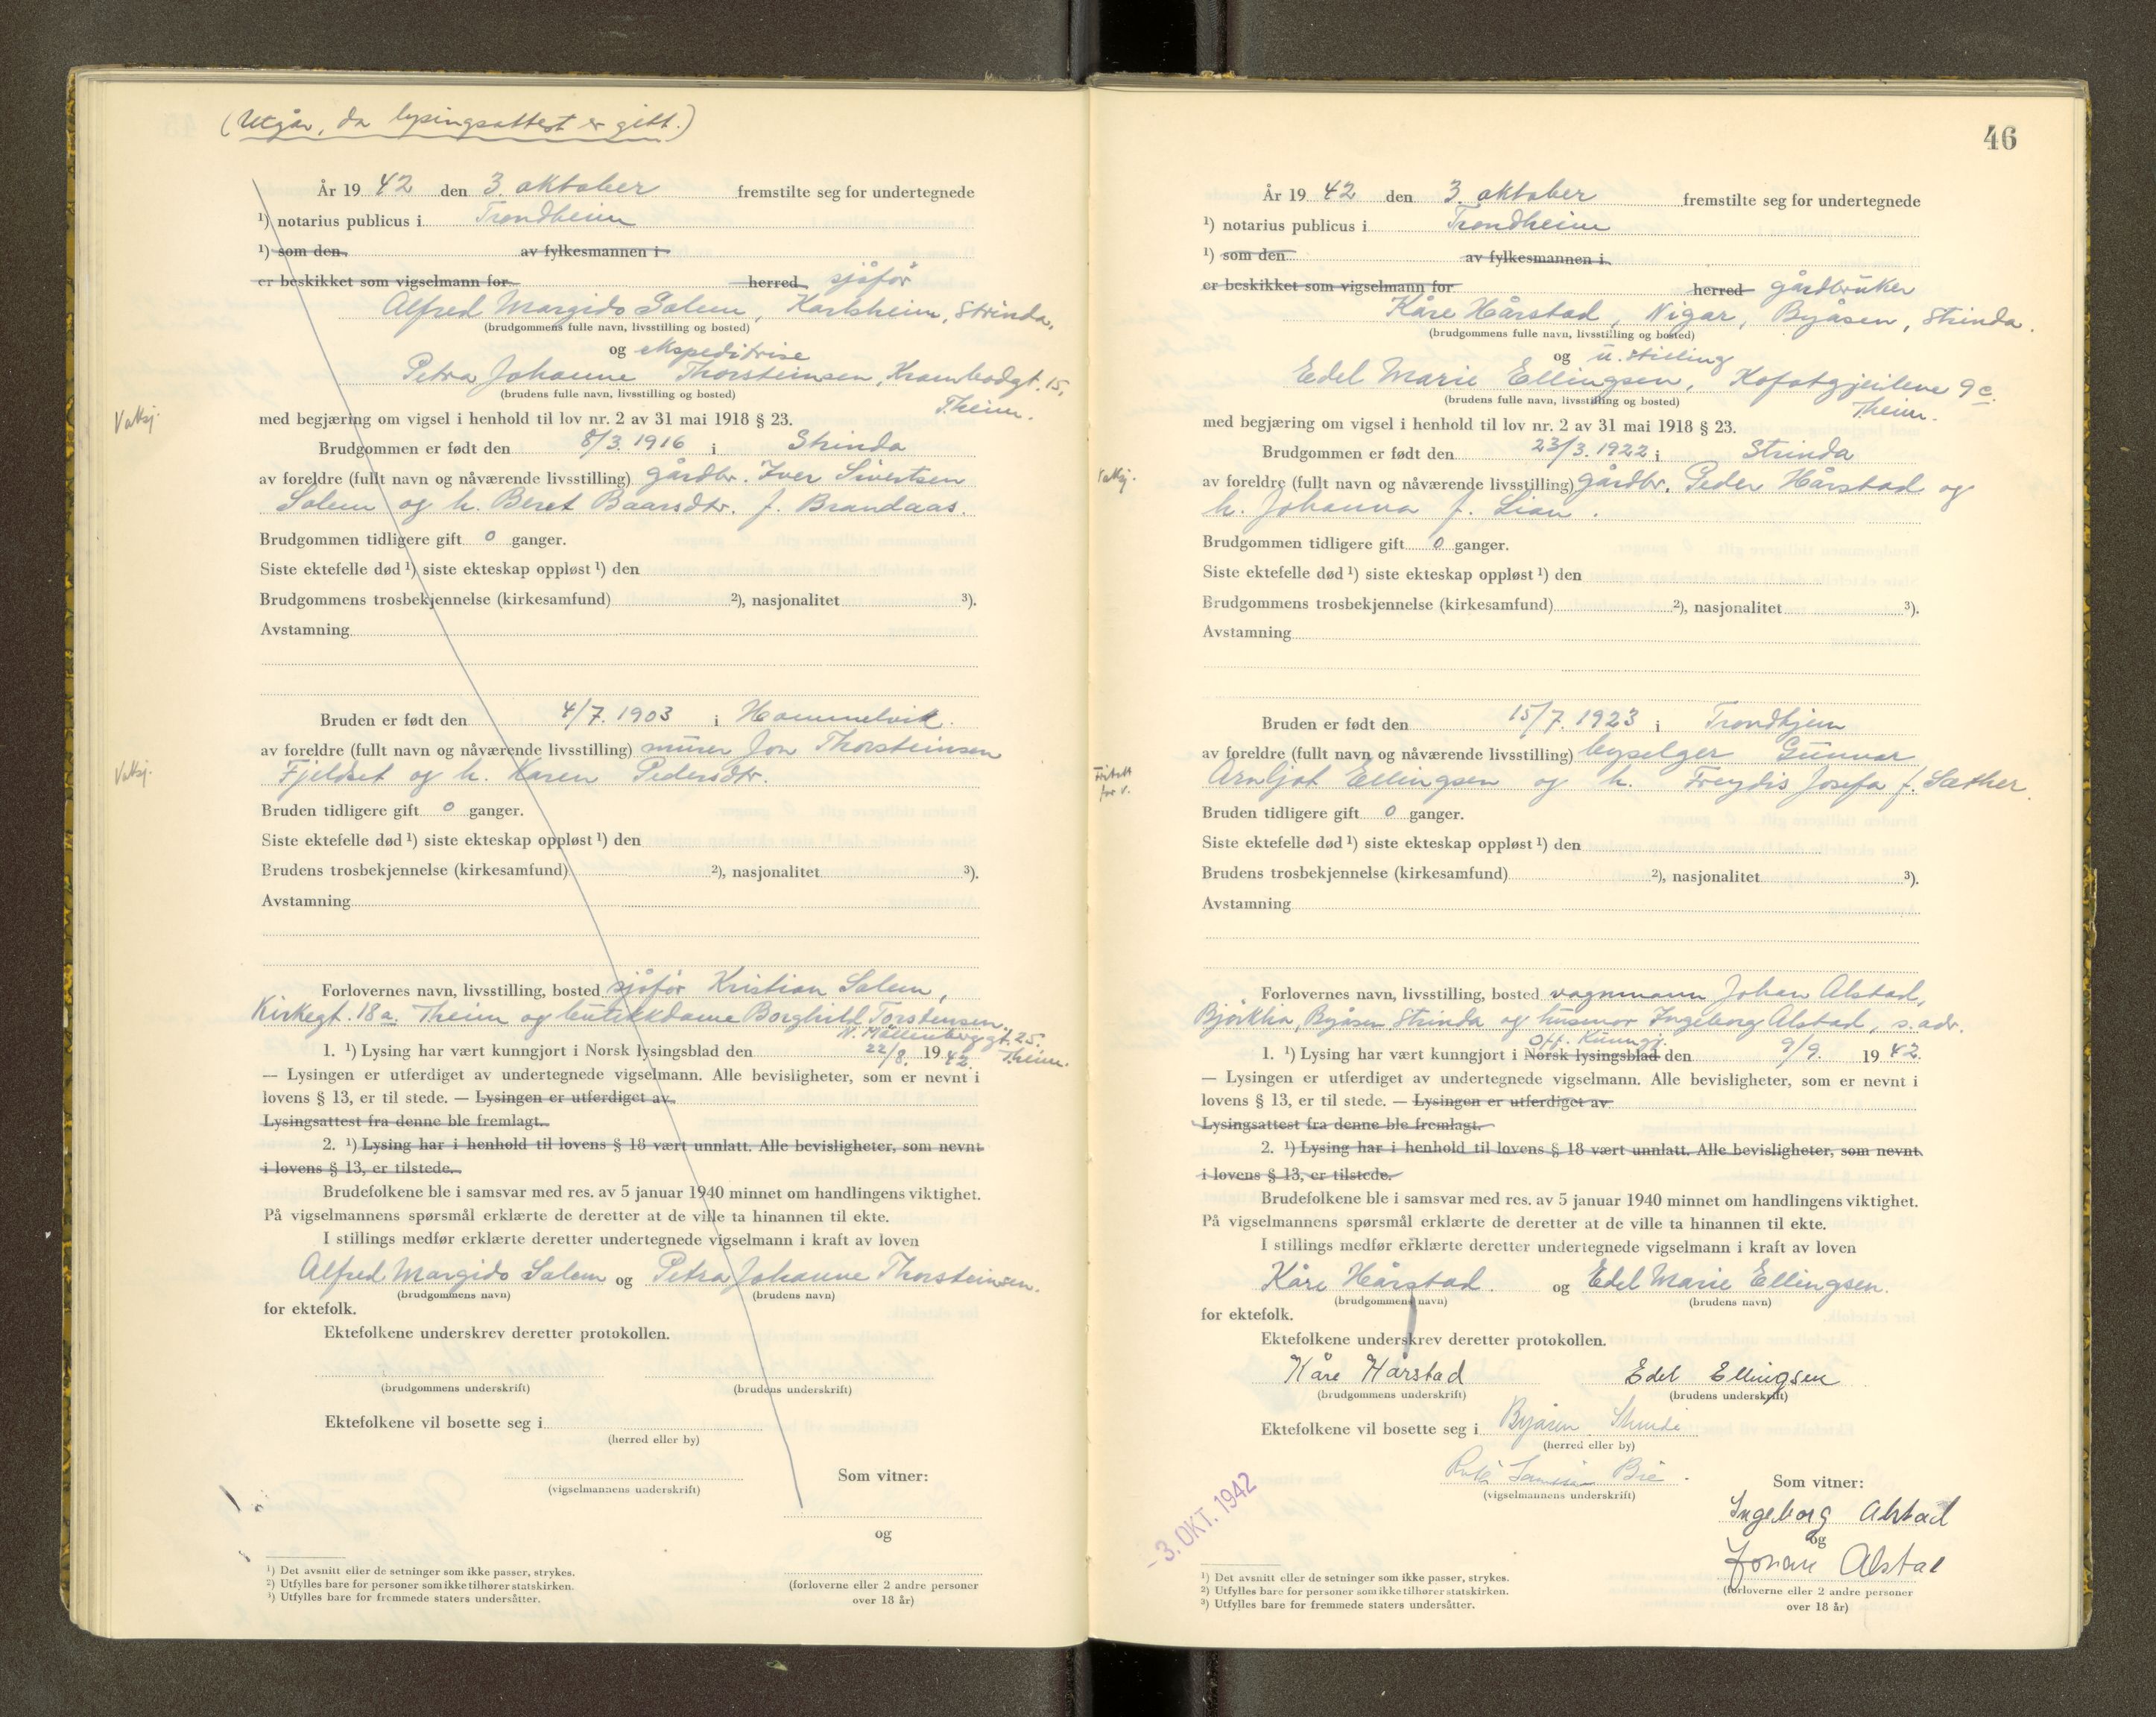 (Utgår, da lysingsattest er gitt.)
År 19 42 den 3. oktober fremstilte seg for undertegnede
¹) notarius publicus i Trondheim
¹) som den av fylkesmannen i
er beskikket som vigselmann for herred sjåfør
Alfred Margido Solem, Karlsheim, Strinda,
(brudgommens fulle navn, livsstilling og bosted)
og ekspeditrise
Petra Johanne Thorsteinsen, Krambodgt. 15,
(brudens fulle navn, livsstilling og bosted)
T.heim.
med begjæring om vigsel i henhold til lov nr. 2 av 31 mai 1918 § 23.
Vaksj.
Brudgommen er født den 8/3. 1916 i Strinda
av foreldre (fullt navn og nåværende livsstilling) gårdbr. Iver Sivertsen
Solem og h. Beret Baarsdtr. f. Brandaas.
Brudgommen tidligere gift 0 ganger.
Siste ektefelle død ¹) siste ekteskap oppløst ¹) den
Brudgommens trosbekjennelse (kirkesamfund) ²), nasjonalitet ³).
Avstamning
Bruden er født den 4/7. 1903 i Hommelvik.
av foreldre (fullt navn og nåværende livsstilling) murer Jon Thorsteinsen
Vaksj.
Fjeldset og h. Karen Pedersdtr.
Bruden tidligere gift 0 ganger.
Siste ektefelle død ¹) siste ekteskap oppløst ¹) den
Brudens trosbekjennelse (kirkesamfund) ²), nasjonalitet ³).
Avstamning
Forlovernes navn, livsstilling, bosted sjåfør Kristian Solem,
Kirkegt. 18a. Theim og butikkdame Borghild Torstensen.
N. Møllenberggt. 25.
T.heim.
1. ¹) Lysing har vært kunngjort i Norsk lysingsblad den 22/8. 19 42.
— Lysingen er utferdiget av undertegnede vigselmann. Alle bevisligheter, som er nevnt i
lovens § 13, er til stede. — Lysingen er utferdiget av
Lysingsattest fra denne ble fremlagt.
2. ¹) Lysing har i henhold til lovens § 18 vært unnlatt. Alle bevisligheter, som nevnt
i lovens § 13, er tilstede.
Brudefolkene ble i samsvar med res. av 5 januar 1940 minnet om handlingens viktighet.
På vigselmannens spørsmål erklærte de deretter at de ville ta hinannen til ekte.
I stillings medfør erklærte deretter undertegnede vigselmann i kraft av loven
Alfred Margido Solem og Petra Johanne Thorsteinsen.
(brudgommens navn) (brudens navn)
for ektefolk.
Ektefolkene underskrev deretter protokollen.
(brudgommens underskrift) (brudens underskrift)
Ektefolkene vil bosette seg i
(herred eller by)
Som vitner:
(vigselmannens underskrift)
og
(forloverne eller 2 andre personer
over 18 år)
¹) Det avsnitt eller de setninger som ikke passer, strykes.
²) Utfylles bare for personer som ikke tilhører statskirken.
³) Utfylles bare for fremmede staters undersåtter.
46
År 19 42 den 3. oktober fremstilte seg for undertegnede
¹) notarius publicus i Trondheim
¹) som den av fylkesmannen i
er beskikket som vigselmann for herred gårdbruker
Kåre Hårstad, Nigar, Byåsen, Strinda.
(brudgommens fulle navn, livsstilling og bosted)
og u. stilling
Edel Marie Ellingsen, Kofotgjeilene 9c.
(brudens fulle navn, livsstilling og bosted)
Theim.
med begjæring om vigsel i henhold til lov nr. 2 av 31 mai 1918 § 23.
Brudgommen er født den 23/3. 1922 i Strinda
Vaksj.
av foreldre (fullt navn og nåværende livsstilling) gårdbr. Peder Hårstad og
h. Johanna f. Lian.
Brudgommen tidligere gift 0 ganger.
Siste ektefelle død ¹) siste ekteskap oppløst ¹) den
Brudgommens trosbekjennelse (kirkesamfund) ²), nasjonalitet ³).
Avstamning
Bruden er født den 15/7. 1923 i Trondhjem
av foreldre (fullt navn og nåværende livsstilling) byselger Gunnar
Fritatt
for v.
Arnljot Ellingsen og h. Freydis Josefa f. Sæther.
Bruden tidligere gift 0 ganger.
Siste ektefelle død ¹) siste ekteskap oppløst ¹) den
Brudens trosbekjennelse (kirkesamfund) ²), nasjonalitet ³).
Avstamning
Forlovernes navn, livsstilling, bosted vognmann Johan Alstad,
Bjørklia, Byåsen Strinda og husmor Ingeborg Alstad, s. adr.
Off. Kunngj.
1. ¹) Lysing har vært kunngjort i Norsk lysingsblad den 9/9. 19 42.
— Lysingen er utferdiget av undertegnede vigselmann. Alle bevisligheter, som er nevnt i
lovens § 13, er til stede. — Lysingen er utferdiget av
Lysingsattest fra denne ble fremlagt.
2. ¹) Lysing har i henhold til lovens § 18 vært unnlatt. Alle bevisligheter, som nevnt
i lovens § 13, er tilstede.
Brudefolkene ble i samsvar med res. av 5 januar 1940 minnet om handlingens viktighet.
På vigselmannens spørsmål erklærte de deretter at de ville ta hinannen til ekte.
I stillings medfør erklærte deretter undertegnede vigselmann i kraft av loven
Kåre Hårstad. og Edel Marie Ellingsen.
(brudgommens navn) (brudens navn)
for ektefolk.
Ektefolkene underskrev deretter protokollen.
Kåre Hårstad Edel Ellingsen
(brudgommens underskrift) (brudens underskrift)
Ektefolkene vil bosette seg i Byåsen Strinda
(herred eller by)
Som vitner:
(vigselmannens underskrift)
Ingeborg Alstad
og
Johan Alstad
(forloverne eller 2 andre personer
over 18 år)
- 3. OKT. 1942
¹) Det avsnitt eller de setninger som ikke passer, strykes.
²) Utfylles bare for personer som ikke tilhører statskirken.
³) Utfylles bare for fremmede staters undersåtter.